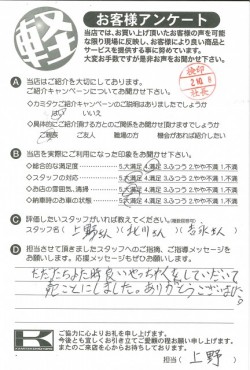 軽
お客様アンケート
当店では、お買い上げ頂いたお客様の声を可能
な限り現場に反映し、お客様により良い商品と
サービスを提供する事に努めています。
大変お手数ですが是非お声をお聞かせ下さい。
検印
社長
A 当店はご紹介を大切にしております。
ご紹介キャンペーンについてお聞かせ下さい。
◇カミタケご紹介キャンペーンのご説明はありましたでしょうか
はい いいえ
◇具体的にご紹介頂ける方とのご関係をお聞かせ頂けますでしょうか
ご親戚 ご友人 職場の方 機会があれば紹介したい
B 当店を実際にご利用になった印象をお聞かせ下さい。
◇総合的な満足度 5.大満足 4.満足 3.ふつう 2.やや不満 1.不満
◇スタッフの対応 5.大満足 4.満足 3.ふつう 2.やや不満 1.不満
◇お店の雰囲気、清掃 5.大満足 4.満足 3.ふつう 2.やや不満 1.不満
◇納車時のお車の状態 5.大満足 4.満足 3.ふつう 2.やや不満 1.不満
C 評価したいスタッフがいれば教えてください。(複数回答可)
スタッフ名( 上野さん )( 北川さん )( さん )
D 担当させて頂きましたスタッフへのご指摘、ご指導メッセージを
お願いします。応援メッセージもぜひお願いします。
ありがとうございました
K
ご協力に心よりお礼を申し上げます。
今後とも宜しくお引き立てご愛顧の程お願い申し上げます。
またのご来店を心からお待ちしております。
担当( 上野 )